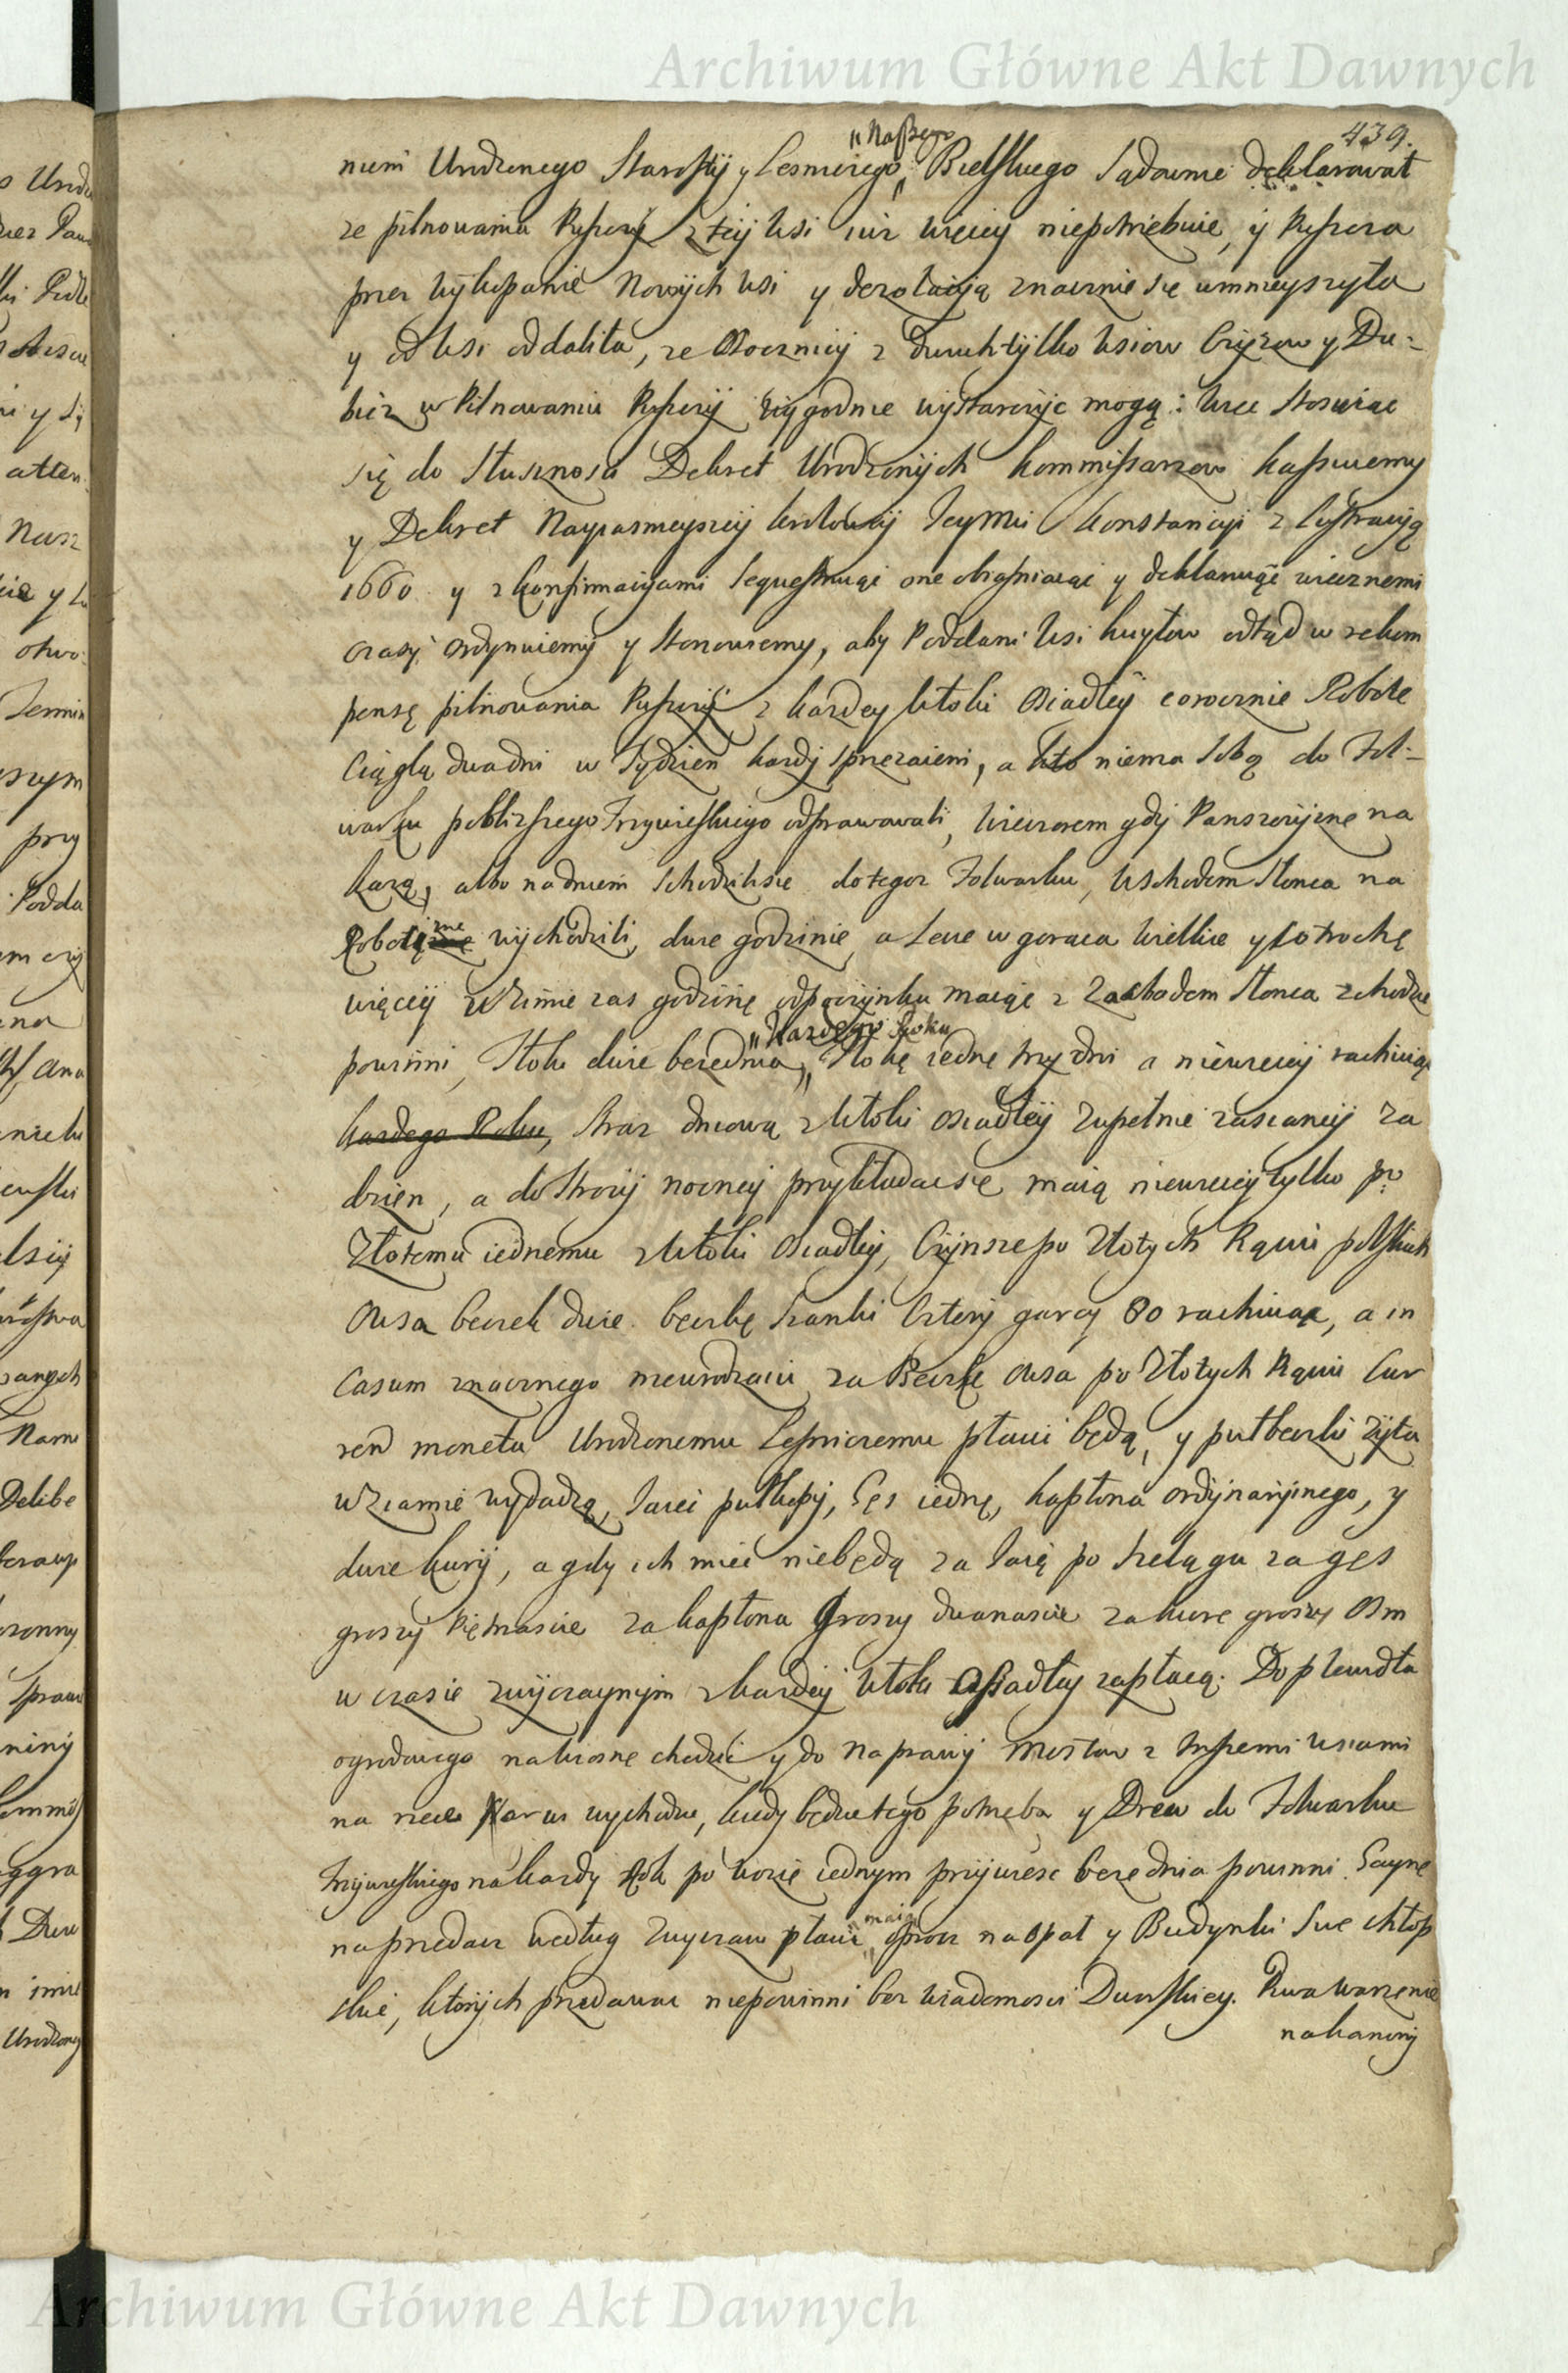 Archiwum Główne Akt Dawnych
439.
"Naszego
nieni Urodzonego Starosty y Lesniczego, Bielskiego Sądownie deklarował
ze pilnowania Puszczy z tey Wsi iuz więcey niepotrzebuie, y Puszcza
przez wykopanie Nowych Wsi y dezolacyą znacznie się umnieyszyła
y od Wsi oddaliła, ze Osocznicy z dwuch tylko Wsiow Czyzow y Du-
bicz w Pilnowaniu Puszczy wygodnie wystarczyc mogą: Więc stosuiąc
się do Słusznosci Dekret Urodzonych Kommissarzow kassuiemy
y Dekret Nayiasnieyszey Krolowey Jeymci Konstancyi z Lustracyą
1660 y z konfirmacyami Sequestruiąc one obiasniaiąc y deklaruiąc wiecznemi
czasy, ordynuiemy y stanowiemy, aby Poddani Wsi Kuytow odtąd w rekom
pensę pilnowania Puszczy z kazdey Włoki Osiadłey corocznie Robote
Ciągłą dwa dni w Tydzien kazdy sprzezaiem, a kto niema Sobą do Fol-
warku pobliższego Trzywieskiego odprawowali, Wieczorem gdy Panszczyzne na
kazą, albo nadniem Schodzili sie do tegoz Folwarku, Wschodem Słonca na
Robotę wychodzili, dwie godzinie, a Lecie w goraca Wielkie y po trochę
więcey w Zimie zas godzinę odpoczynku maiąc z Zachodem Słonca zchodzic
"Kazdego Roku
powinni, Tłok dwie bezednia, Tłokę iednę trzy dni a niewięcey rachuiąc
kazdego Roku, Straz dniową z Włoki Osiadłey zupełnie zasianey za
dzien, a do Strozy nocney przykładac się maią niewięcey tylko po
Złotemu iednemu z Włoki Osiadłey, Czynsze po Złotych Pąciu polskich
Owsa beczek dwie beczkę Szanki Cztery garcy 80 rachuiąc, a in
Casum znacznego nieurodzaiu za Beczkę Owsa po Złotych Pąciu Cur
rend moneta Urodzonemu Lesniczemu płacic będą, y puł beczki Zyta
w Ziarnie wydadzą, Jaiec puł kopy, Gęs iednę, kapłona ordynaryinego, y
dwie kury, a gdy ich miec niebędą za Jaię po szelągu za gęs
groszy Piętnascie za kapłona Groszy dwanascie za kure groszy Osm
w czasie zwyczaynym z kazdey Włoki Osiadłey zapłacą. Do plewidła
ogrodowego na wiosnę chodzic y do Naprawy Mostow z inszemi wsiami
na rzece Narwi wychodzic, kiedy będzie tego potrzeba y Drew do Folwarku
Trzywieskiego na kazdy Rok po wozie iednym przywiesc bezednia powinni. Gayne
maią
na przedaz według Zwyczaiu płacic oprocz na opał y Budynki Swe chłop
skie, ktorych przedawac niepowinni bez wiadomosci Dworskiey. Piwa warzenie
nakaniny
Archiwum Główne Akt Dawnych